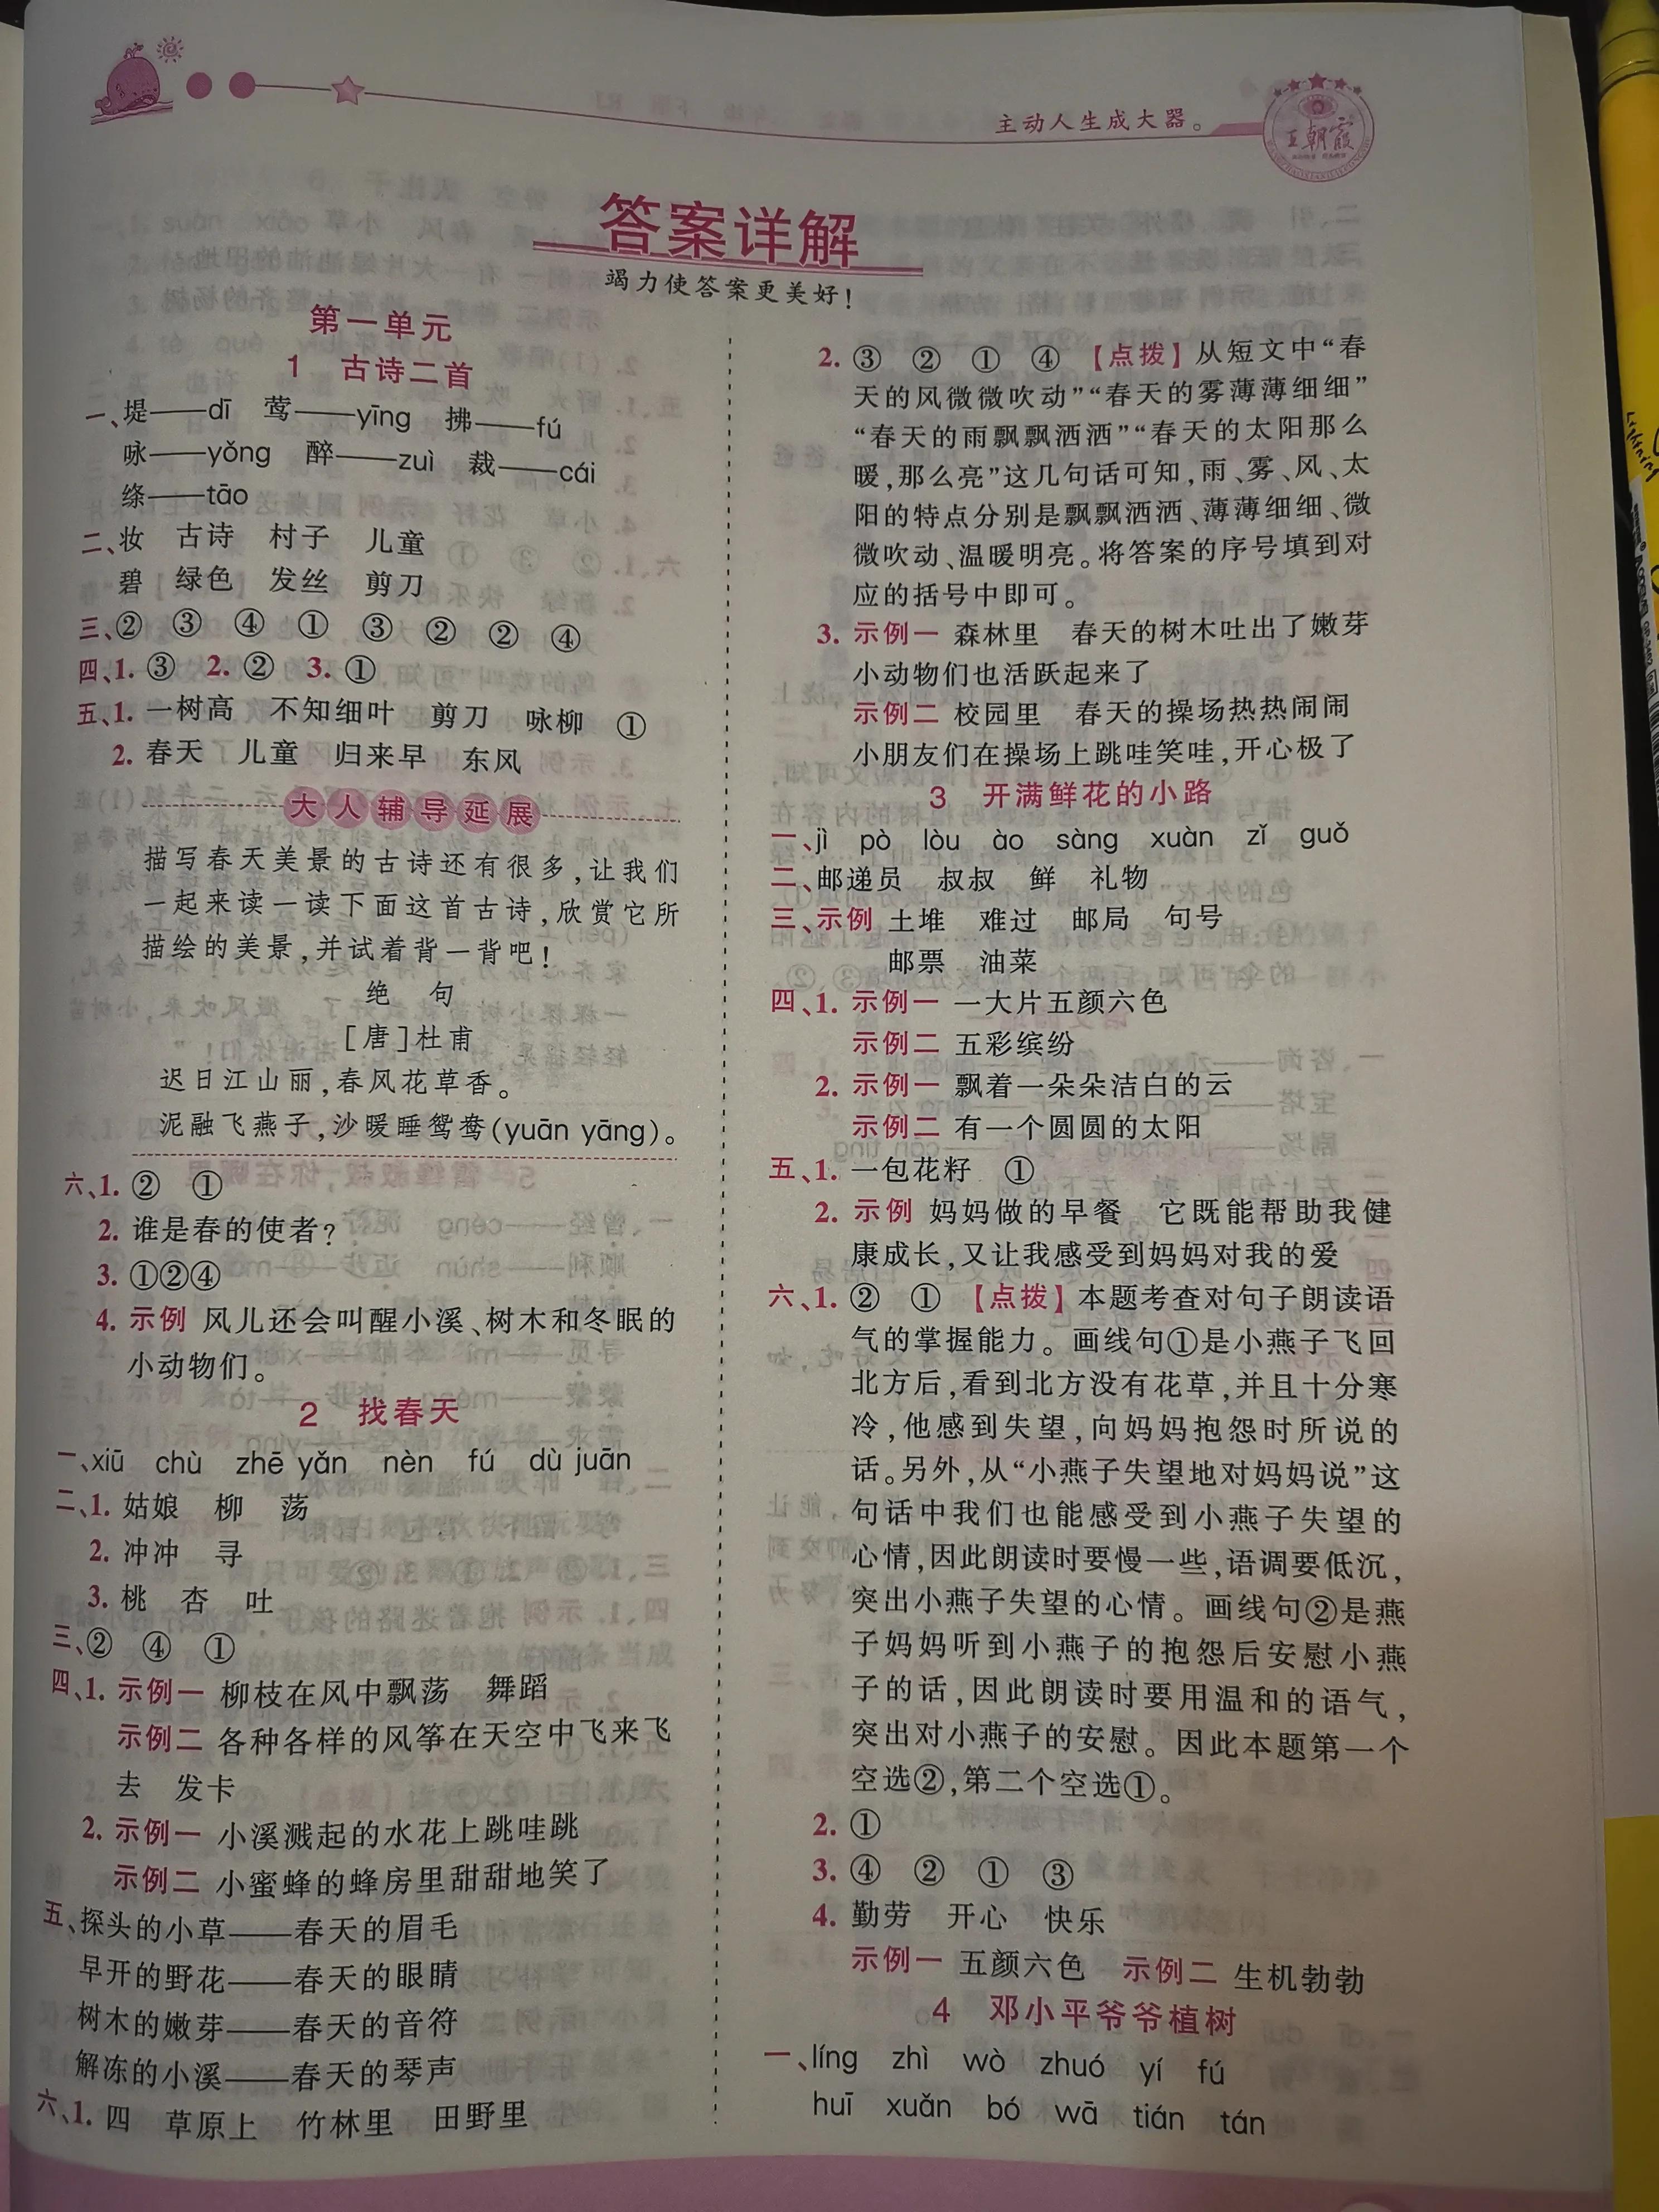 主动人生成大器。
王朝霞
答案详解
竭力使答案更美好!
第一单元
1 古诗二首
一、堤——dī 莺——yīng 拂——fú
咏——yǒng 醉——zuì 裁——cái
绦——tāo
二、妆 古诗 村子 儿童
碧 绿色 发丝 剪刀
三、② ③ ④ ① ③ ② ② ④
四、1. ③ 2. ② 3. ①
五、1. 一树高 不知细叶 剪刀 咏柳 ①
2. 春天 儿童 归来早 东风
大人辅导延展
描写春天美景的古诗还有很多,让我们
一起来读一读下面这首古诗,欣赏它所
描绘的美景,并试着背一背吧!
绝 句
[唐]杜甫
迟日江山丽,春风花草香。
泥融飞燕子,沙暖睡鸳鸯(yuān yāng)。
六、1. ② ①
2. 谁是春的使者?
3. ①②④
4. 示例 风儿还会叫醒小溪、树木和冬眠的
小动物们。
2 找春天
一、xiū chù zhē yǎn nèn fú dù juān
二、1. 姑娘 柳 荡
2. 冲冲 寻
3. 桃 杏 吐
三、② ④ ①
四、1. 示例一 柳枝在风中飘荡 舞蹈
示例二 各种各样的风筝在天空中飞来飞
去 发卡
2. 示例一 小溪溅起的水花上跳哇跳
示例二 小蜜蜂的蜂房里甜甜地笑了
五、探头的小草——春天的眉毛
早开的野花——春天的眼睛
树木的嫩芽——春天的音符
解冻的小溪——春天的琴声
六、1. 四 草原上 竹林里 田野里
2. ③ ② ① ④ 【点拨】从短文中“春
天的风微微吹动”“春天的雾薄薄细细”
“春天的雨飘飘洒洒”“春天的太阳那么
暖,那么亮”这几句话可知,雨、雾、风、太
阳的特点分别是飘飘洒洒、薄薄细细、微
微吹动、温暖明亮。将答案的序号填到对
应的括号中即可。
3. 示例一 森林里 春天的树木吐出了嫩芽
小动物们也活跃起来了
示例二 校园里 春天的操场热热闹闹
小朋友们在操场上跳哇笑哇,开心极了
3 开满鲜花的小路
一、jì pò lòu ào sàng xuàn zǐ guǒ
二、邮递员 叔叔 鲜 礼物
三、示例 土堆 难过 邮局 句号
邮票 油菜
四、1. 示例一 一大片五颜六色
示例二 五彩缤纷
2. 示例一 飘着一朵朵洁白的云
示例二 有一个圆圆的太阳
五、1. 一包花籽 ①
2. 示例 妈妈做的早餐 它既能帮助我健
康成长,又让我感受到妈妈对我的爱
六、1. ② ① 【点拨】本题考查对句子朗读语
气的掌握能力。画线句①是小燕子飞回
北方后,看到北方没有花草,并且十分寒
冷,他感到失望,向妈妈抱怨时所说的
话。另外,从“小燕子失望地对妈妈说”这
句话中我们也能感受到小燕子失望的
心情,因此朗读时要慢一些,语调要低沉,
突出小燕子失望的心情。画线句②是燕
子妈妈听到小燕子的抱怨后安慰小燕
子的话,因此朗读时要用温和的语气,
突出对小燕子的安慰。因此本题第一个
空选②,第二个空选①。
2. ①
3. ④ ② ① ③
4. 勤劳 开心 快乐
示例一 五颜六色 示例二 生机勃勃
4 邓小平爷爷植树
一、líng zhì wò zhuó yí fú
huī xuǎn bó wā tián tán